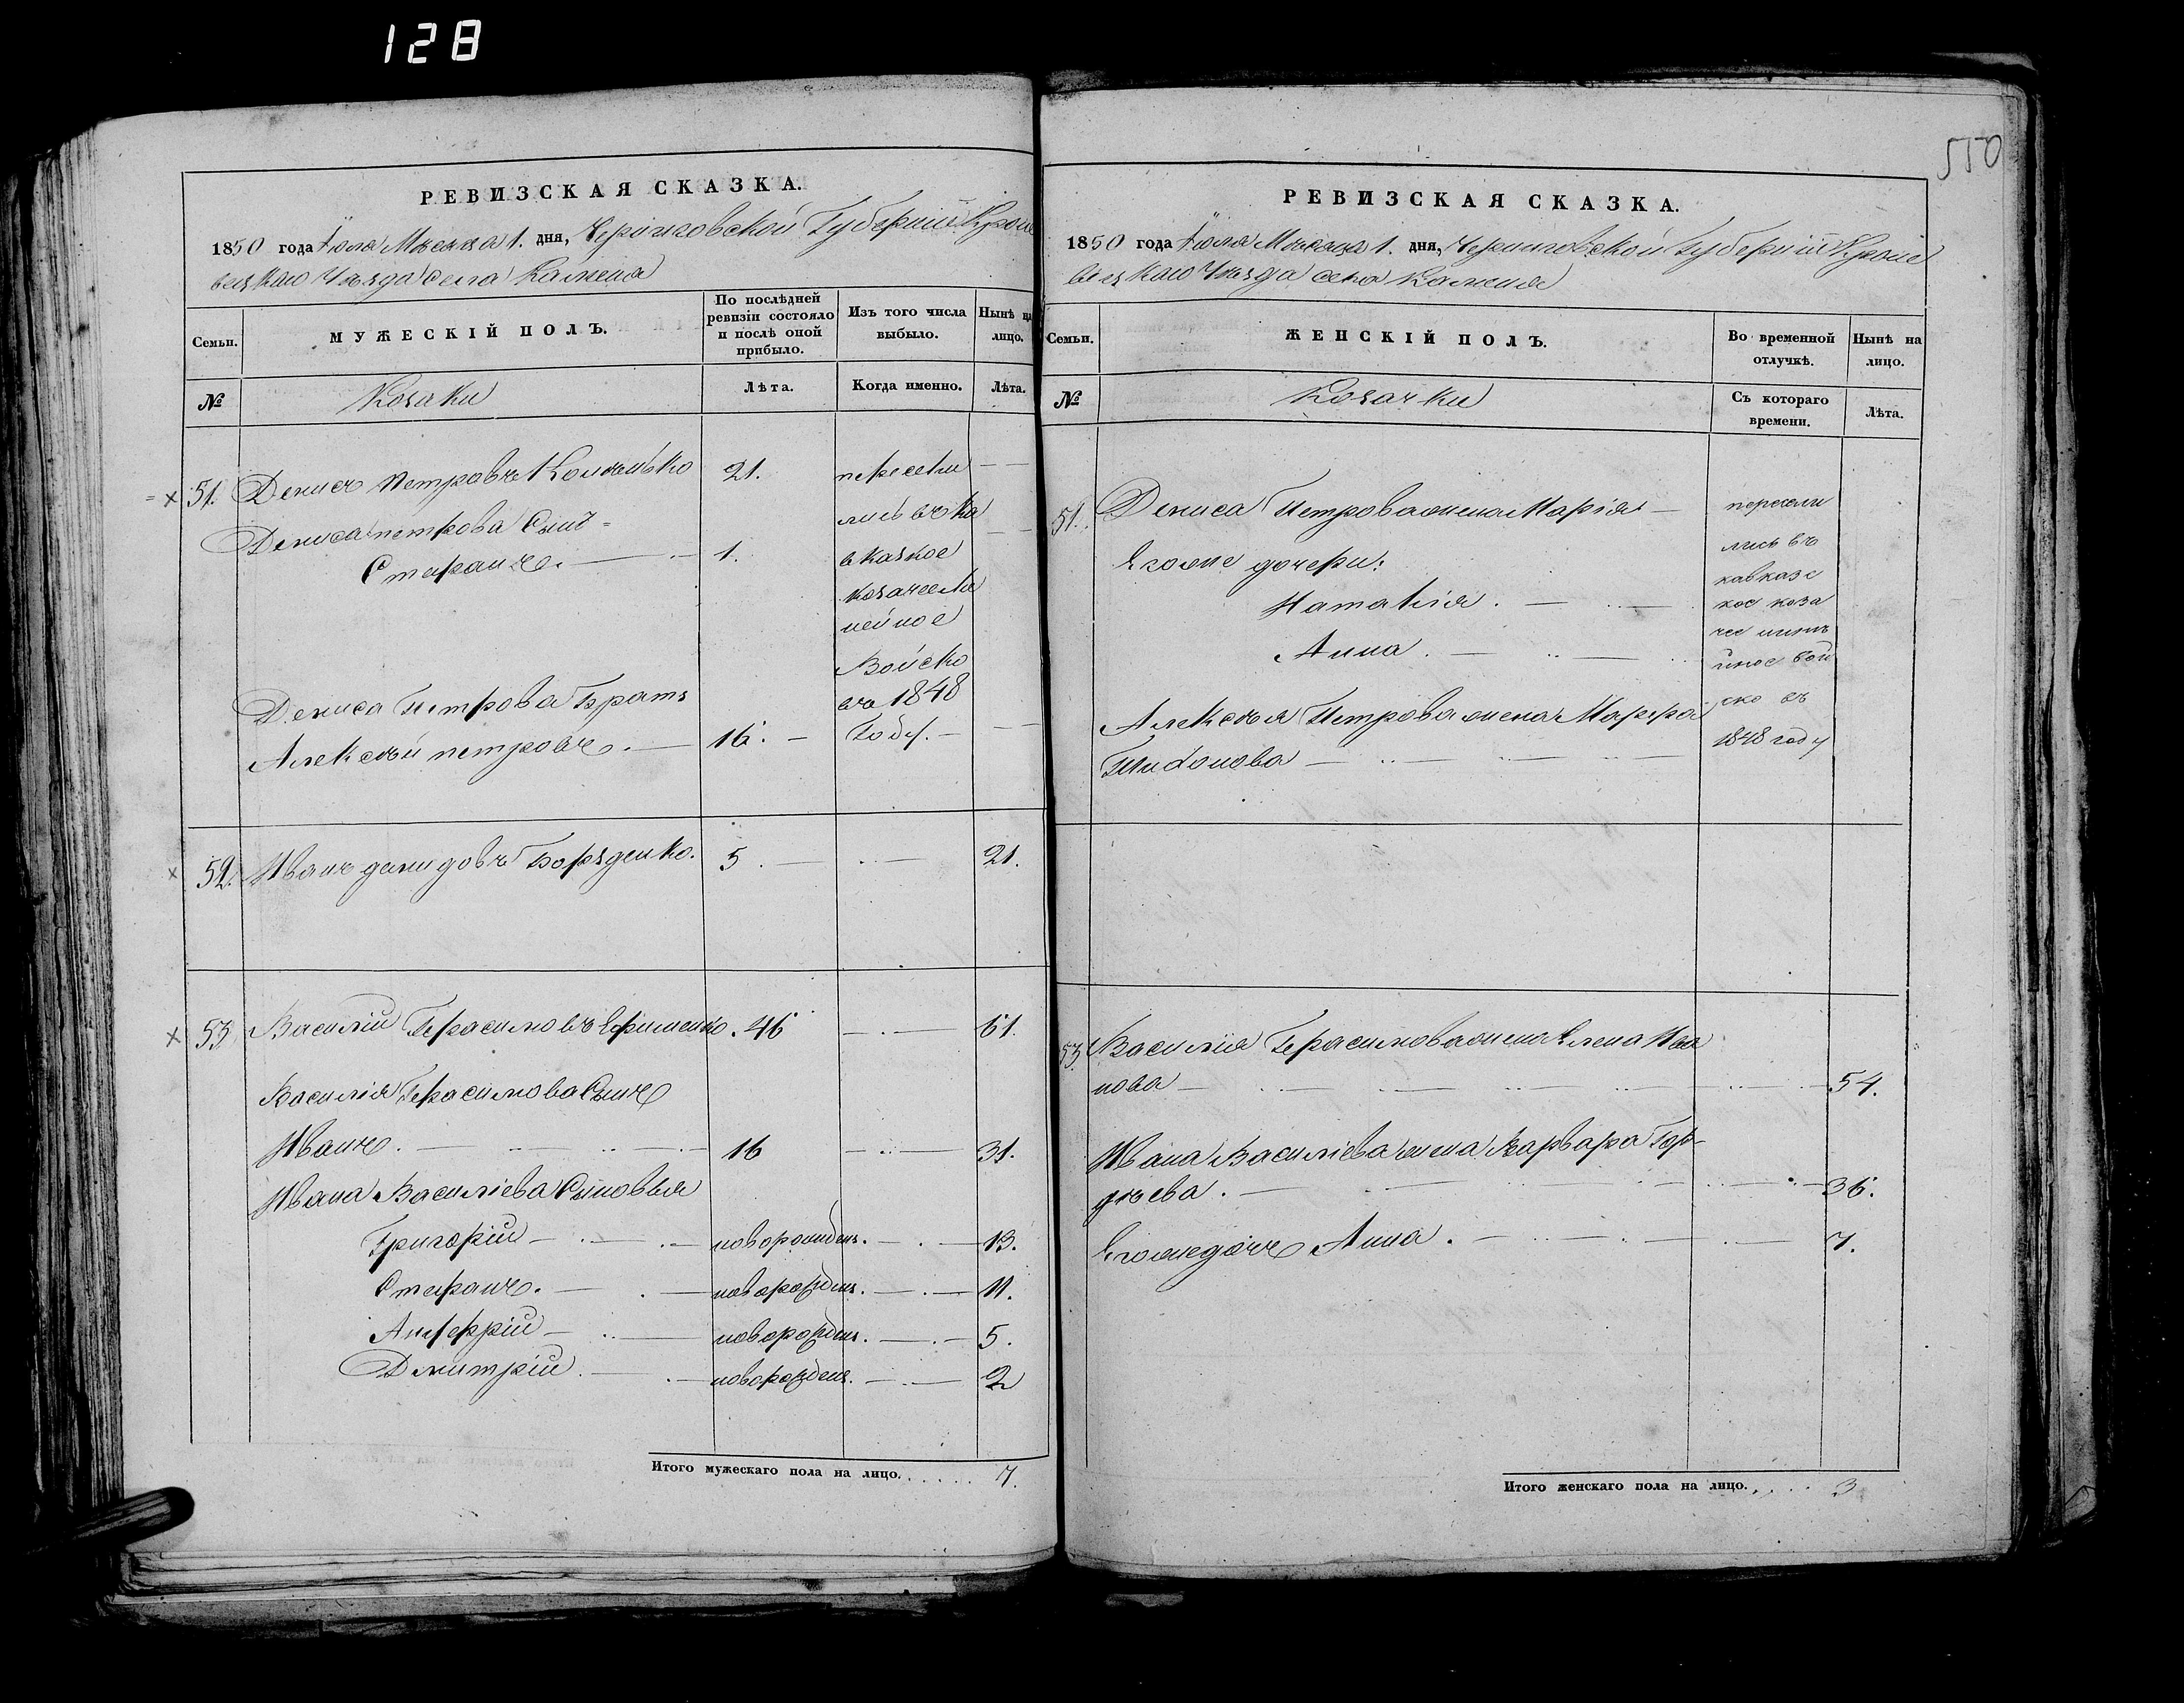 128
550
РЕВИЗСКАЯ СКАЗКА.
1850 года Іюля Мѣсяца 1. дня, Черниговской Губерніи Кроле
вецкаго Уѣзда Села Каменя
Семьи.
МУЖЕСКІЙ ПОЛЪ.
По послѣдней
ревизіи состояло
и послѣ оной
прибыло.
Изъ того числа
выбыло.
Нынѣ на
лицо.
№
Козаки
Лѣта.
Когда именно.
Лѣта.
51. Денисъ Петровъ 21. пересели
Дениса петрова Сынъ лись въ Ка
Стефанъ. 1. вказкое
козачее Ли
нейное
Войско
Дениса Петрова Братъ въ 1848
Алексѣй петровъ. 16. Году.
52. Иванъ демидовъ Борзденко. 5. 21.
53 Василій Герасимовъ Ефименко. 46 61.
Василія Герасимова Сынъ
Иванъ. 16 31.
Ивана Василіева Сыновья
Григорій новорожден. 13.
Стефанъ. новорожден. 11.
Анѳеррій новорожден. 5.
Дмитрій. новорожден. 2
Итого мужескаго пола на лицо. 7.
РЕВИЗСКАЯ СКАЗКА.
1850 года Іюля Мѣсяца 1. дня, Черниговской Губерніи Кроле
вецкаго Уѣзда села Каменя
Семьи.
ЖЕНСКІЙ ПОЛЪ.
Во временной
отлучкѣ.
Нынѣ на
лицо.
№
Козачки
Съ котораго
времени.
Лѣта.
51. Дениса Петрова жена Марія пересели
лись въ
Егоже дочери: кавказс
Наталія. кое коза
чее линѣ
Анна. йное вой
ско въ
Алексѣя Петрова жена Марфа 1848 году
Тихонова
53. Василія Герасимова жена Елена Ива
нова 54.
Ивана Василіева жена Варвара Гор-
дѣева. 36.
Егоже дочь Анна. 7.
Итого женскаго пола на лицо. 3